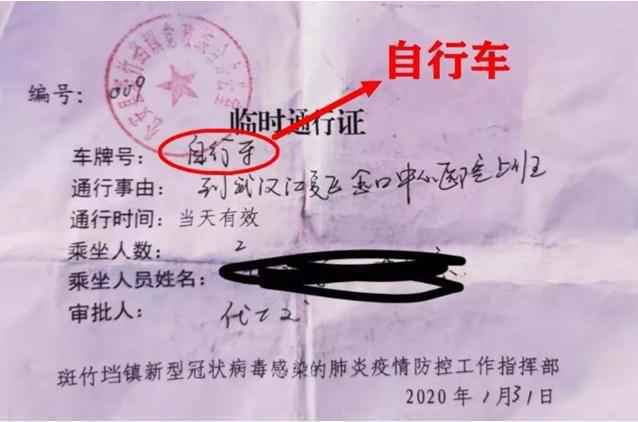 编号：009
自行车
临时通行证
车牌号：自行车
通行事由：到武汉江夏区金口中心医院上班
通行时间：当天有效
乘坐人数：2
乘坐人员姓名：
审批人：
斑竹垱镇新型冠状病毒感染的肺炎疫情防控工作指挥部
2020年1月31日